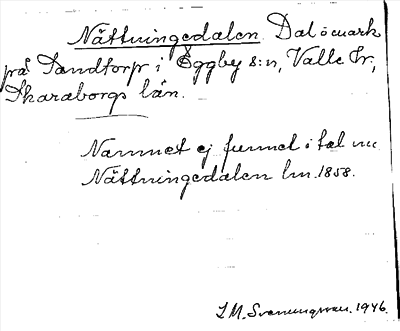 Nättningedalen. Dal o mark
på Sandtorp i Eggby s:n, Valle hr,
Skaraborgs län.
Namnet ej funnet i tal nu.
Nättningedalen lm. 1858.
I. M. Svenungsson. 1946.